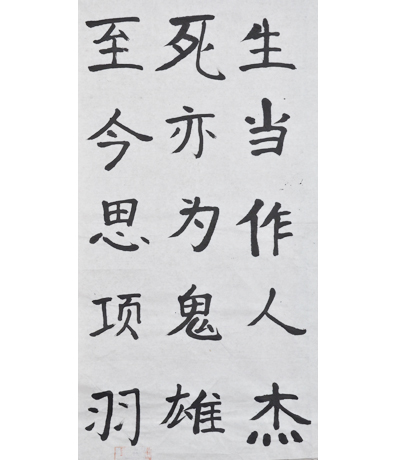 生当作人杰
死亦为鬼雄
至今思项羽